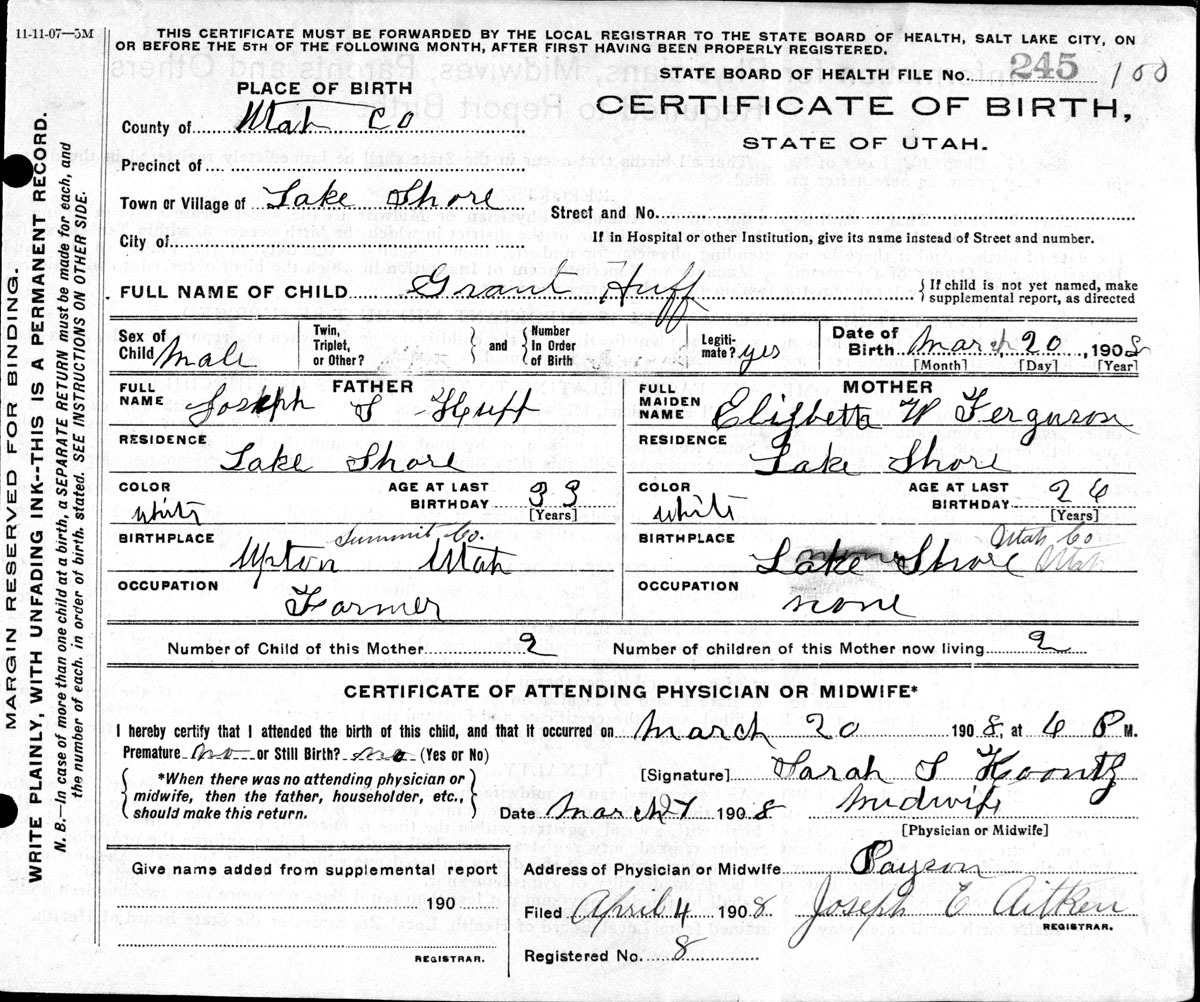 11-11-07—5M
THIS CERTIFICATE MUST BE FORWARDED BY THE LOCAL REGISTRAR TO THE STATE BOARD OF HEALTH, SALT LAKE CITY, ON
OR BEFORE THE 5TH OF THE FOLLOWING MONTH, AFTER FIRST HAVING BEEN PROPERLY REGISTERED.
STATE BOARD OF HEALTH FILE No. 245 100
PLACE OF BIRTH
CERTIFICATE OF BIRTH,
STATE OF UTAH.
County of Utah Co
Precinct of
Town or Village of Lake Shore
Street and No.
City of
If in Hospital or other Institution, give its name instead of Street and number.
FULL NAME OF CHILD Grant Huff
{ If child is not yet named, make supplemental report, as directed
Sex of Child Male
Twin, Triplet, or Other? } and { Number In Order of Birth
Legiti-mate? yes
Date of Birth March 20, 1908
[Month] [Day] [Year]
FATHER
FULL NAME Joseph S Huff
RESIDENCE
Lake Shore
COLOR white
AGE AT LAST BIRTHDAY 33
[Years]
BIRTHPLACE Summit Co.
Upton Utah
OCCUPATION
Farmer
MOTHER
FULL MAIDEN NAME Elizbetta W Ferguson
RESIDENCE
Lake Shore
COLOR white
AGE AT LAST BIRTHDAY 26
[Years]
BIRTHPLACE Utah Co
Lake Shore Utah
OCCUPATION
none
Number of Child of this Mother 2
Number of children of this Mother now living 2
CERTIFICATE OF ATTENDING PHYSICIAN OR MIDWIFE*
I hereby certify that I attended the birth of this child, and that it occurred on March 20 1908, at 6 P M.
Premature no or Still Birth? no (Yes or No)
{ *When there was no attending physician or midwife, then the father, householder, etc., should make this return. }
[Signature] Sarah S Koontz
Date March 27 1908 Midwife
[Physician or Midwife]
Give name added from supplemental report
190
REGISTRAR.
Address of Physician or Midwife Payson
Filed April 4 1908 Joseph E Aitken
REGISTRAR.
Registered No. 8
MARGIN RESERVED FOR BINDING.
WRITE PLAINLY, WITH UNFADING INK--THIS IS A PERMANENT RECORD.
N. B.—In case of more than one child at a birth, a SEPARATE RETURN must be made for each, and
the number of each, in order of birth, stated. SEE INSTRUCTIONS ON OTHER SIDE.